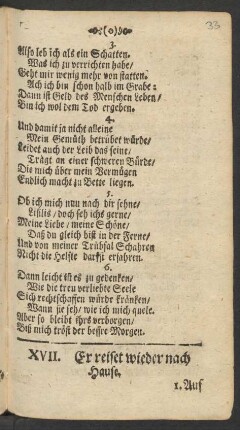 33
(o)
3.
Also leb ich als ein Schatten.
Was ich zu verrichten habe/
Geht mir wenig mehr von statten.
Ach ich bin schon halb im Grabe:
Dann ist Geld des Menschen Leben/
Bin ich wol dem Tod ergeben.
4.
Und damit ja nicht alleine
Mein Gemüth betrübet würde/
Leidet auch der Leib das seine,
Trägt an einer schweren Bürde/
Die mich über mein Vermügen
Endlich macht zu Bette liegen.
5.
Ob ich mich nun nach dir sehne/
Lisilis / doch seh ichs gerne/
Meine Liebe / meine Schöne/
Daß du gleich bist in der Ferne/
Und von meiner Trübsal Schahren
Nicht die Helfte darfst erfahren.
6.
Dann leicht ist es zu gedenken/
Wie die treu verliebte Seele
Sich rechtschaffen würde kränken/
Wann sie seh/ wie ich mich quele.
Aber so bleibt ihrs verborgen/
Biß mich tröst der bessre Morgen.
XVII. Er reiset wieder nach
Hause.
1. Auf